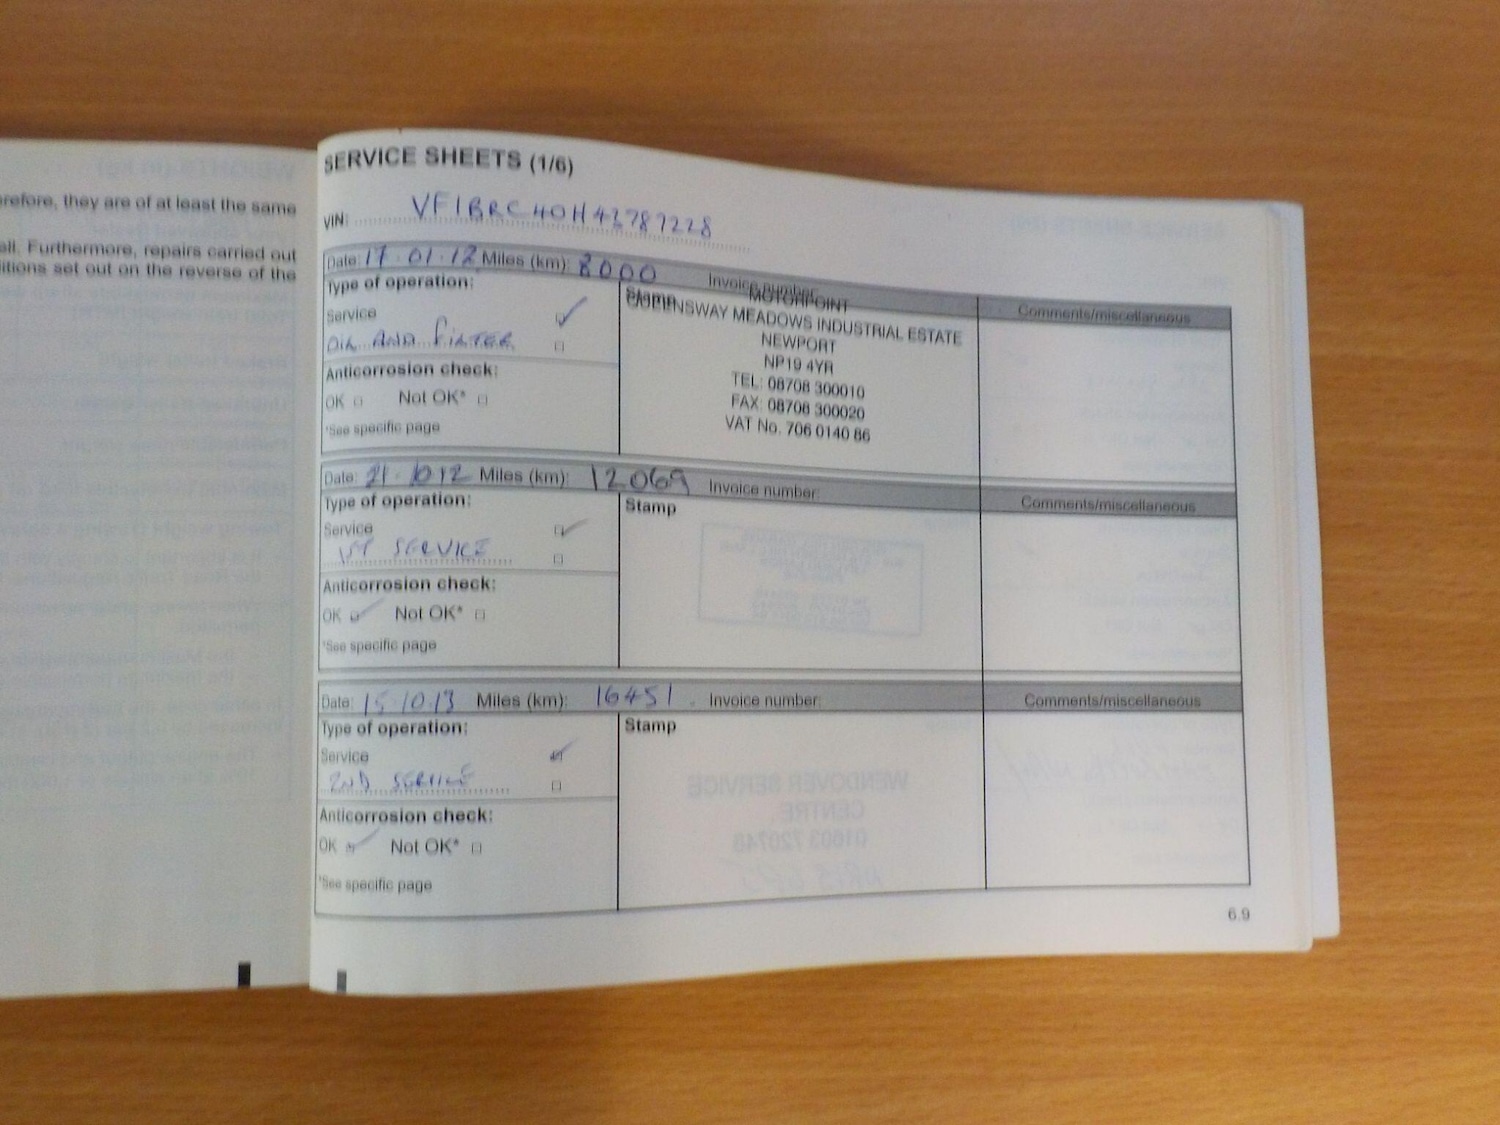 erefore, they are of at least the same
ell. Furthermore, repairs carried out
ditions set out on the reverse of the
SERVICE SHEETS (1/6)
VIN: VF1BRC40H43787228
Date: 17.01.12 Miles (km): 8000 Invoice number:
Type of operation: Stamp Comments/miscellaneous
Service
OIL AND FILTER
Anticorrosion check:
OK Not OK*
*See specific page
MOTORPOINT
QUEENSWAY MEADOWS INDUSTRIAL ESTATE
NEWPORT
NP19 4YR
TEL: 08708 300010
FAX: 08708 300020
VAT No. 706 0140 86
Date: 21.10 12 Miles (km): 12069 Invoice number: Comments/miscellaneous
Type of operation: Stamp
Service
1ST SERVICE
Anticorrosion check:
OK Not OK*
*See specific page
Date: 15.10.13 Miles (km): 16451. Invoice number: Comments/miscellaneous
Type of operation: Stamp
Service
2ND SERVICE
Anticorrosion check:
OK Not OK*
*See specific page
6.9